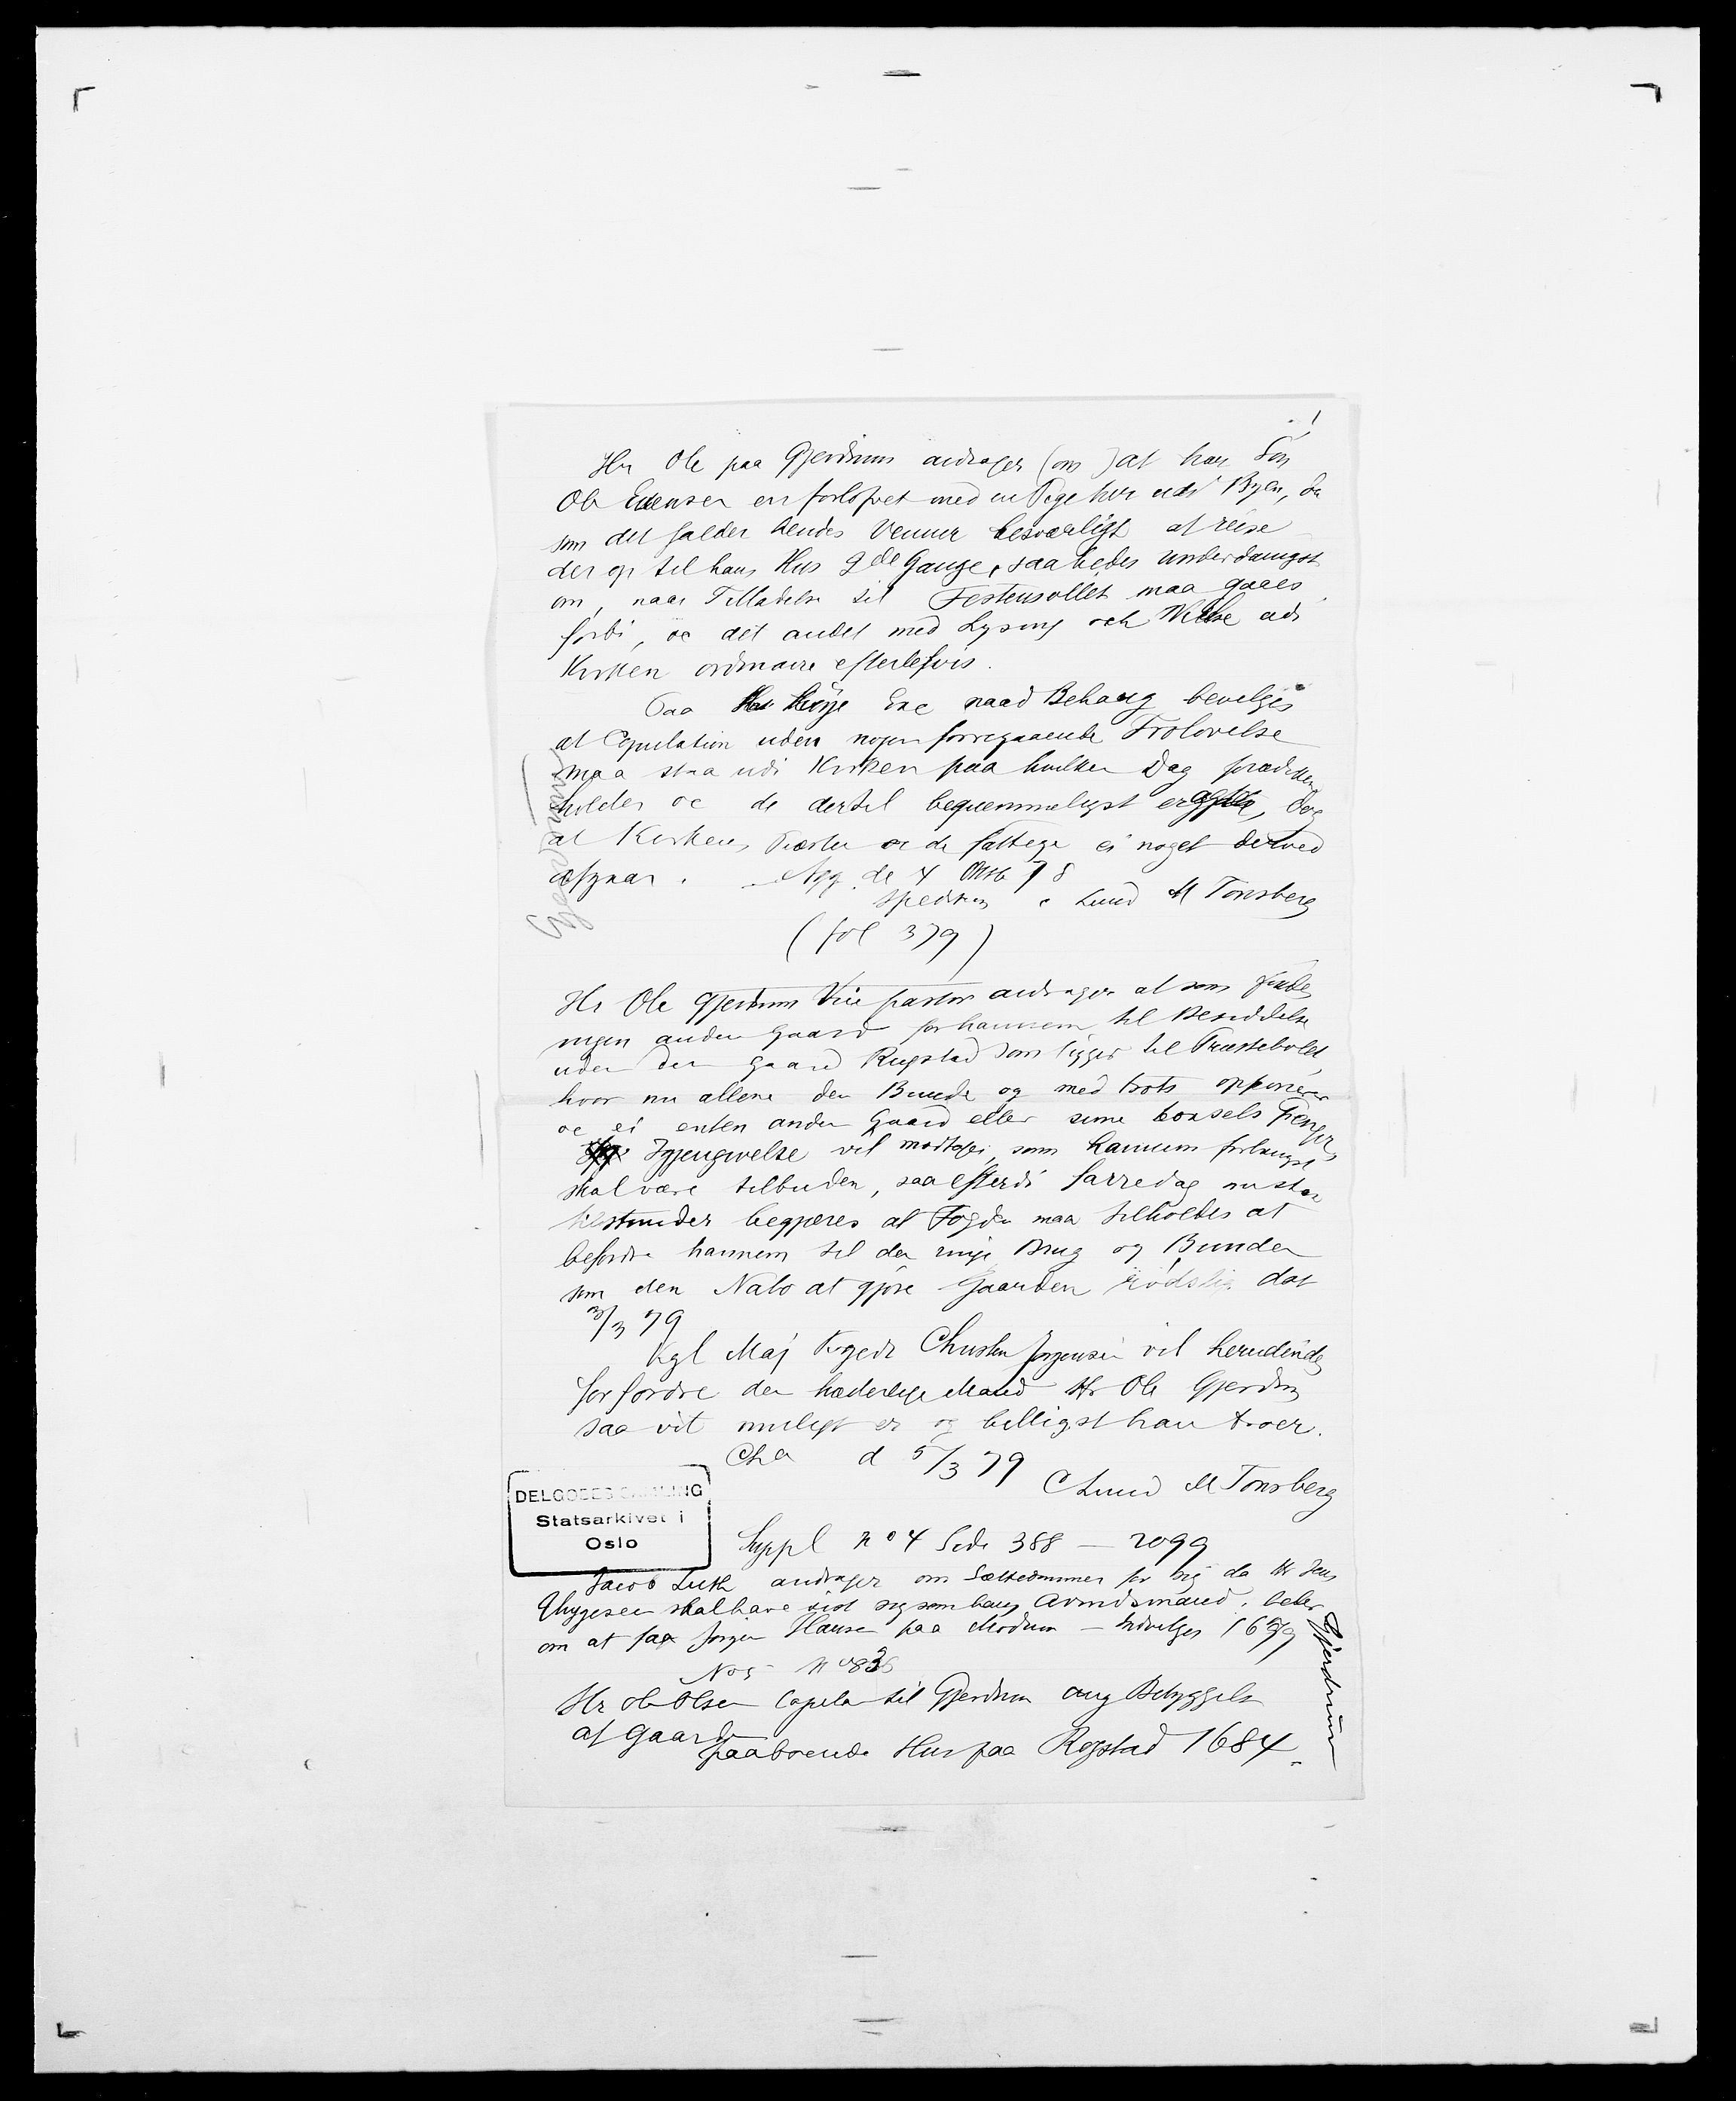 Hr Ole paa Gjerdrum andrager (om) at hans Søn
Ole Evensen er forlofvet med en Pige her udi Byen, da
som det falder hendes Venner besværligt at reise
der op til hans Hus 2de Gange, saa bedes underdanigst
om, naar Tilladelse til Festensøllet maa gaaes
forbi, oc det andet med Lysning och Vielse udi
Kirken ordinaire efterlefvis.
Paa Høje Exc naad Behaug bevelges
at Copulation uden nogen forregaaende Trolovelse
maa staa udi Kirken paa hvilken Dag prædiken
holdes oc de dertil beqvemmeligst er, dog
at Kirken, Præsten oc de fattige ei noget derved
afgaar. Agg. de 4 Octb 78
C Lund M Tonsberg
(fol 379)
Hr Ole Gjerdrum Vice pastor andrager at som findes
ingen anden Gaard for hannem til Besiddelse
uden den Gaard Rugstad som ligger til Præstebolet,
hvor nu allene den Bunde og med trots opponerer
oc ei enten anden Gaard eller sine boxsels Penger
Igjengivelse vil modtage, som hannem forlængst
skal være tilbuden, saa efterdi farredag nu
tilstunder begjæres at Fogden maa tilholdes at
befordre hannem til den ringe Brug og Bunden
som den Nabo at gjøre Gaarden dat
3/3 79
Kgl Maj Foged Christen Jørgensen vil herudinde
forfordre den hæderlige Mand Hr Ole Gjerdrum
saa vit muligt er og billigst han troer.
Cha d 5/3 79
C Lund M Tonsberg
DELGOBES SAMLING
Statsarkivet i
Oslo
Suppl no 4 Side 388 — 2099
Jacob Luth andrager om Sættedommer for sig da Hr Jens
Thygesen skal have vist sig som hans Avindsmand, beder
om at faa Jørgen Hansen paa Modum — indvilges 1679
Nos no 836
Hr Ole Olsen Capelan til Gjerdrum ang Bebyggelse
af Gaarden
paaboende Hus paa Rogstad 1684
Gjerdrum